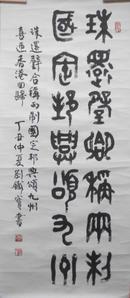 珠還璧合稱兩制
國定邦興頌九州
珠還璧合稱兩制國定邦興頌九州
喜迎香港回歸 丁丑仲夏劉鐵寶書